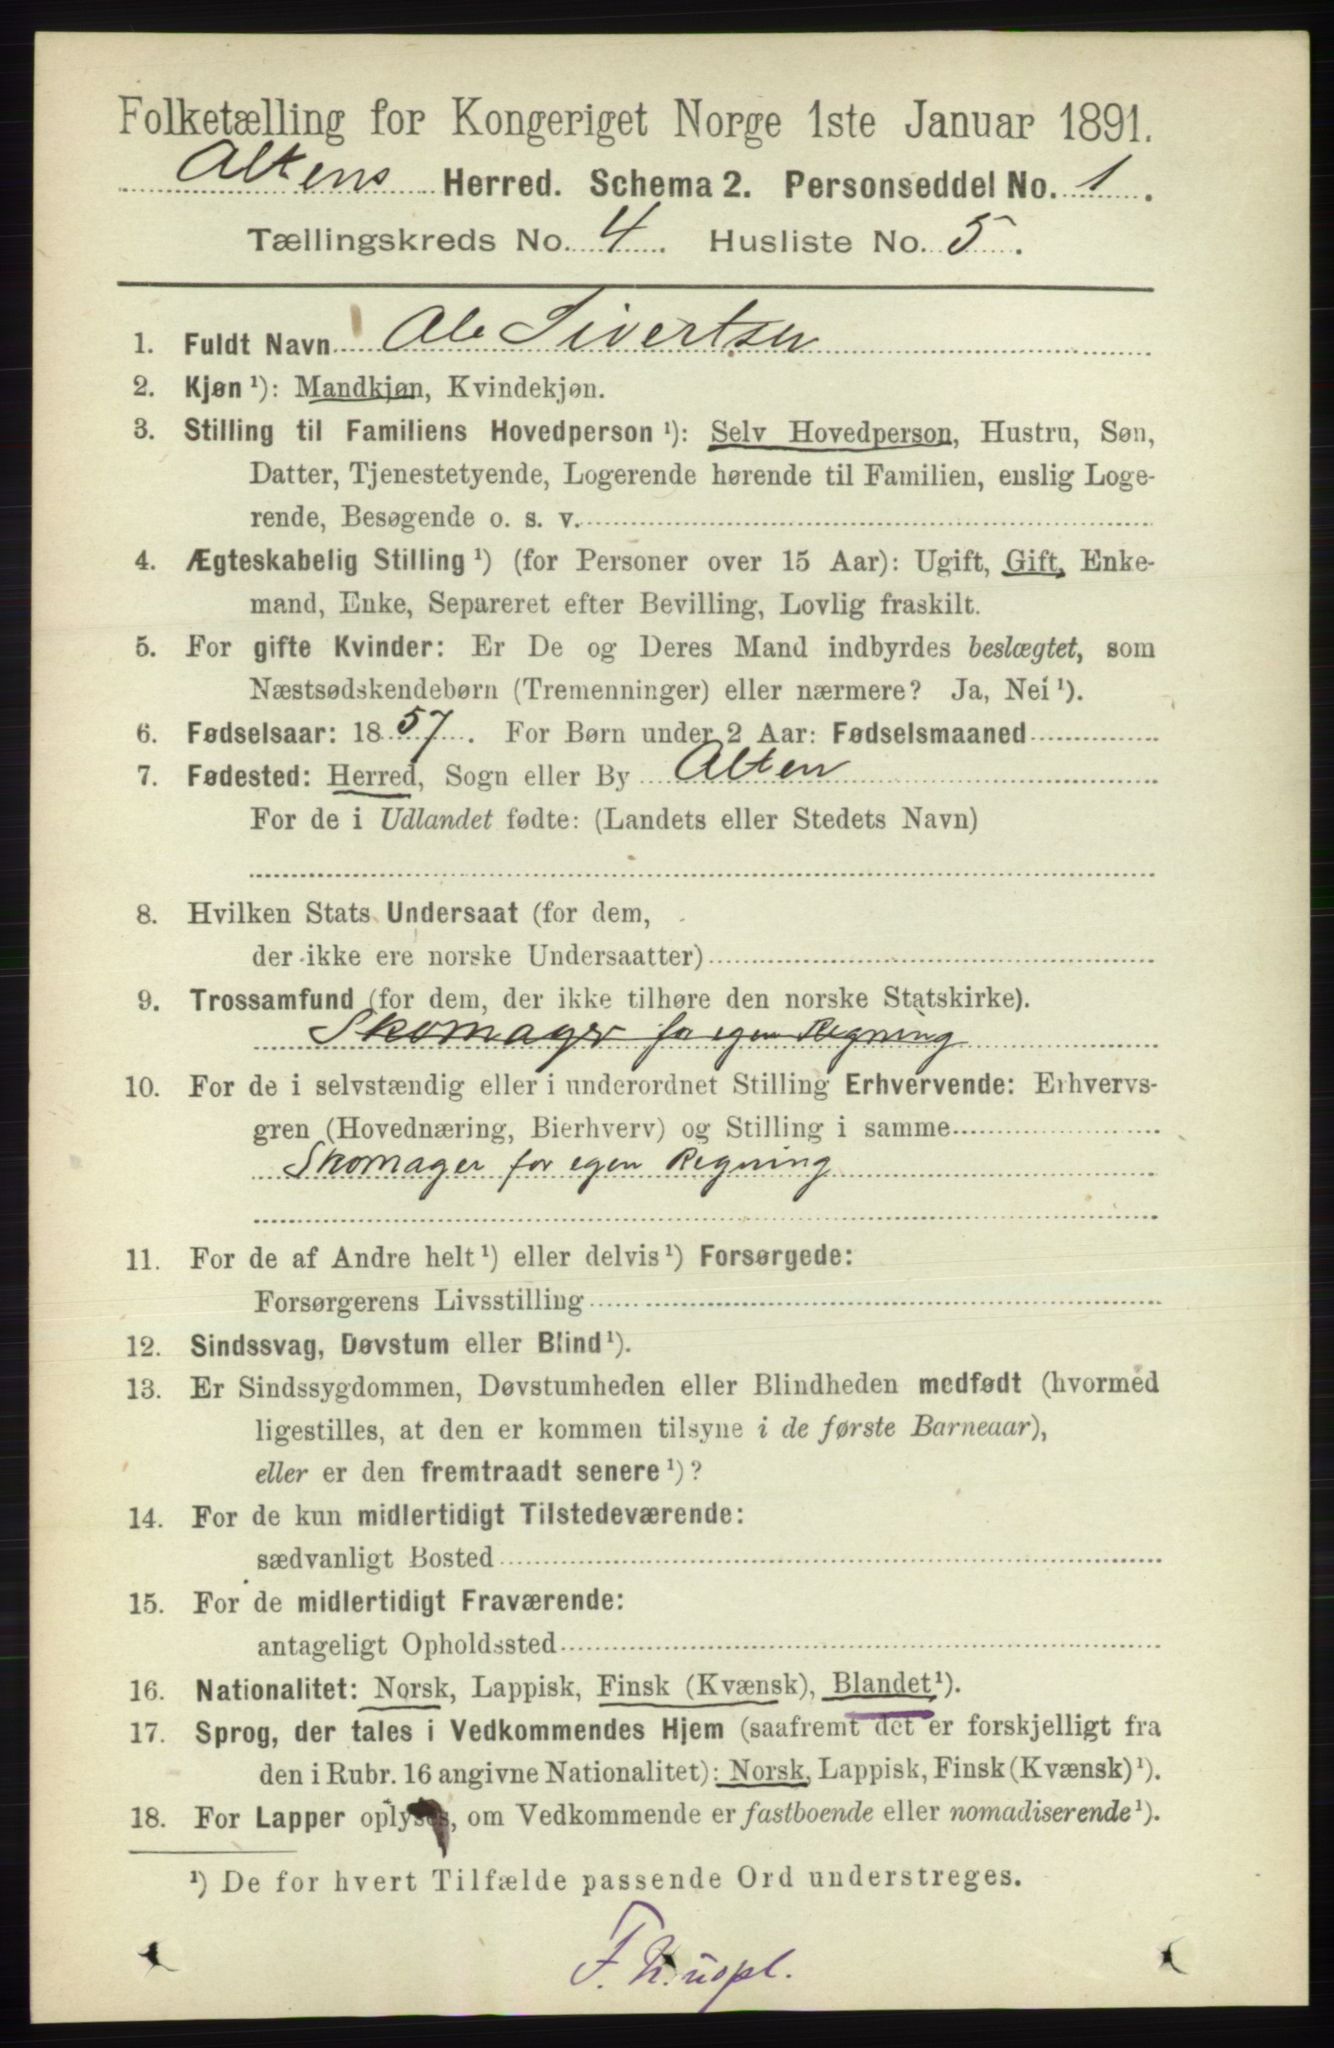 Folketælling for Kongeriget Norge 1ste Januar 1891.
Altens Herred. Schema 2. Personseddel No. 1.
Tællingskreds No. 4. Husliste No. 5.
1. Fuldt Navn Ole Sivertsen
2. Kjøn ¹): Mandkjøn, Kvindekjøn.
3. Stilling til Familiens Hovedperson ¹): Selv Hovedperson, Hustru, Søn,
Datter, Tjenestetyende, Logerende hørende til Familien, enslig Loge-
rende, Besøgende o. s. v.
4. Ægteskabelig Stilling ¹) (for Personer over 15 Aar): Ugift, Gift, Enke-
mand, Enke, Separeret efter Bevilling, Lovlig fraskilt.
5. For gifte Kvinder: Er De og Deres Mand indbyrdes beslægtet, som
Næstsødskendebørn (Tremenninger) eller nærmere? Ja, Nei ¹).
6. Fødselsaar: 1857. For Børn under 2 Aar: Fødselsmaaned
7. Fødested: Herred, Sogn eller By Alten
For de i Udlandet fødte: (Landets eller Stedets Navn)
8. Hvilken Stats Undersaat (for dem,
der ikke ere norske Undersaatter)
9. Trossamfund (for dem, der ikke tilhøre den norske Statskirke).
Skomager for egen Regning
10. For de i selvstændig eller i underordnet Stilling Erhvervende: Erhvervs-
gren (Hovednæring, Bierhverv) og Stilling i samme
Skomager for egen Regning
11. For de af Andre helt ¹) eller delvis ¹) Forsørgede:
Forsørgerens Livsstilling
12. Sindssvag, Døvstum eller Blind ¹).
13. Er Sindssygdommen, Døvstumheden eller Blindheden medfødt (hvormed
ligestilles, at den er kommen tilsyne i de første Barneaar),
eller er den fremtraadt senere ¹)?
14. For de kun midlertidigt Tilstedeværende:
sædvanligt Bosted
15. For de midlertidigt Fraværende:
antageligt Opholdssted
16. Nationalitet: Norsk, Lappisk, Finsk (Kvænsk), Blandet ¹).
17. Sprog, der tales i Vedkommendes Hjem (saafremt det er forskjelligt fra
den i Rubr. 16 angivne Nationalitet): Norsk, Lappisk, Finsk (Kvænsk) ¹).
18. For Lapper oplyses, om Vedkommende er fastboende eller nomadiserende ¹).
¹) De for hvert Tilfælde passende Ord understreges.
F. N. uopl.